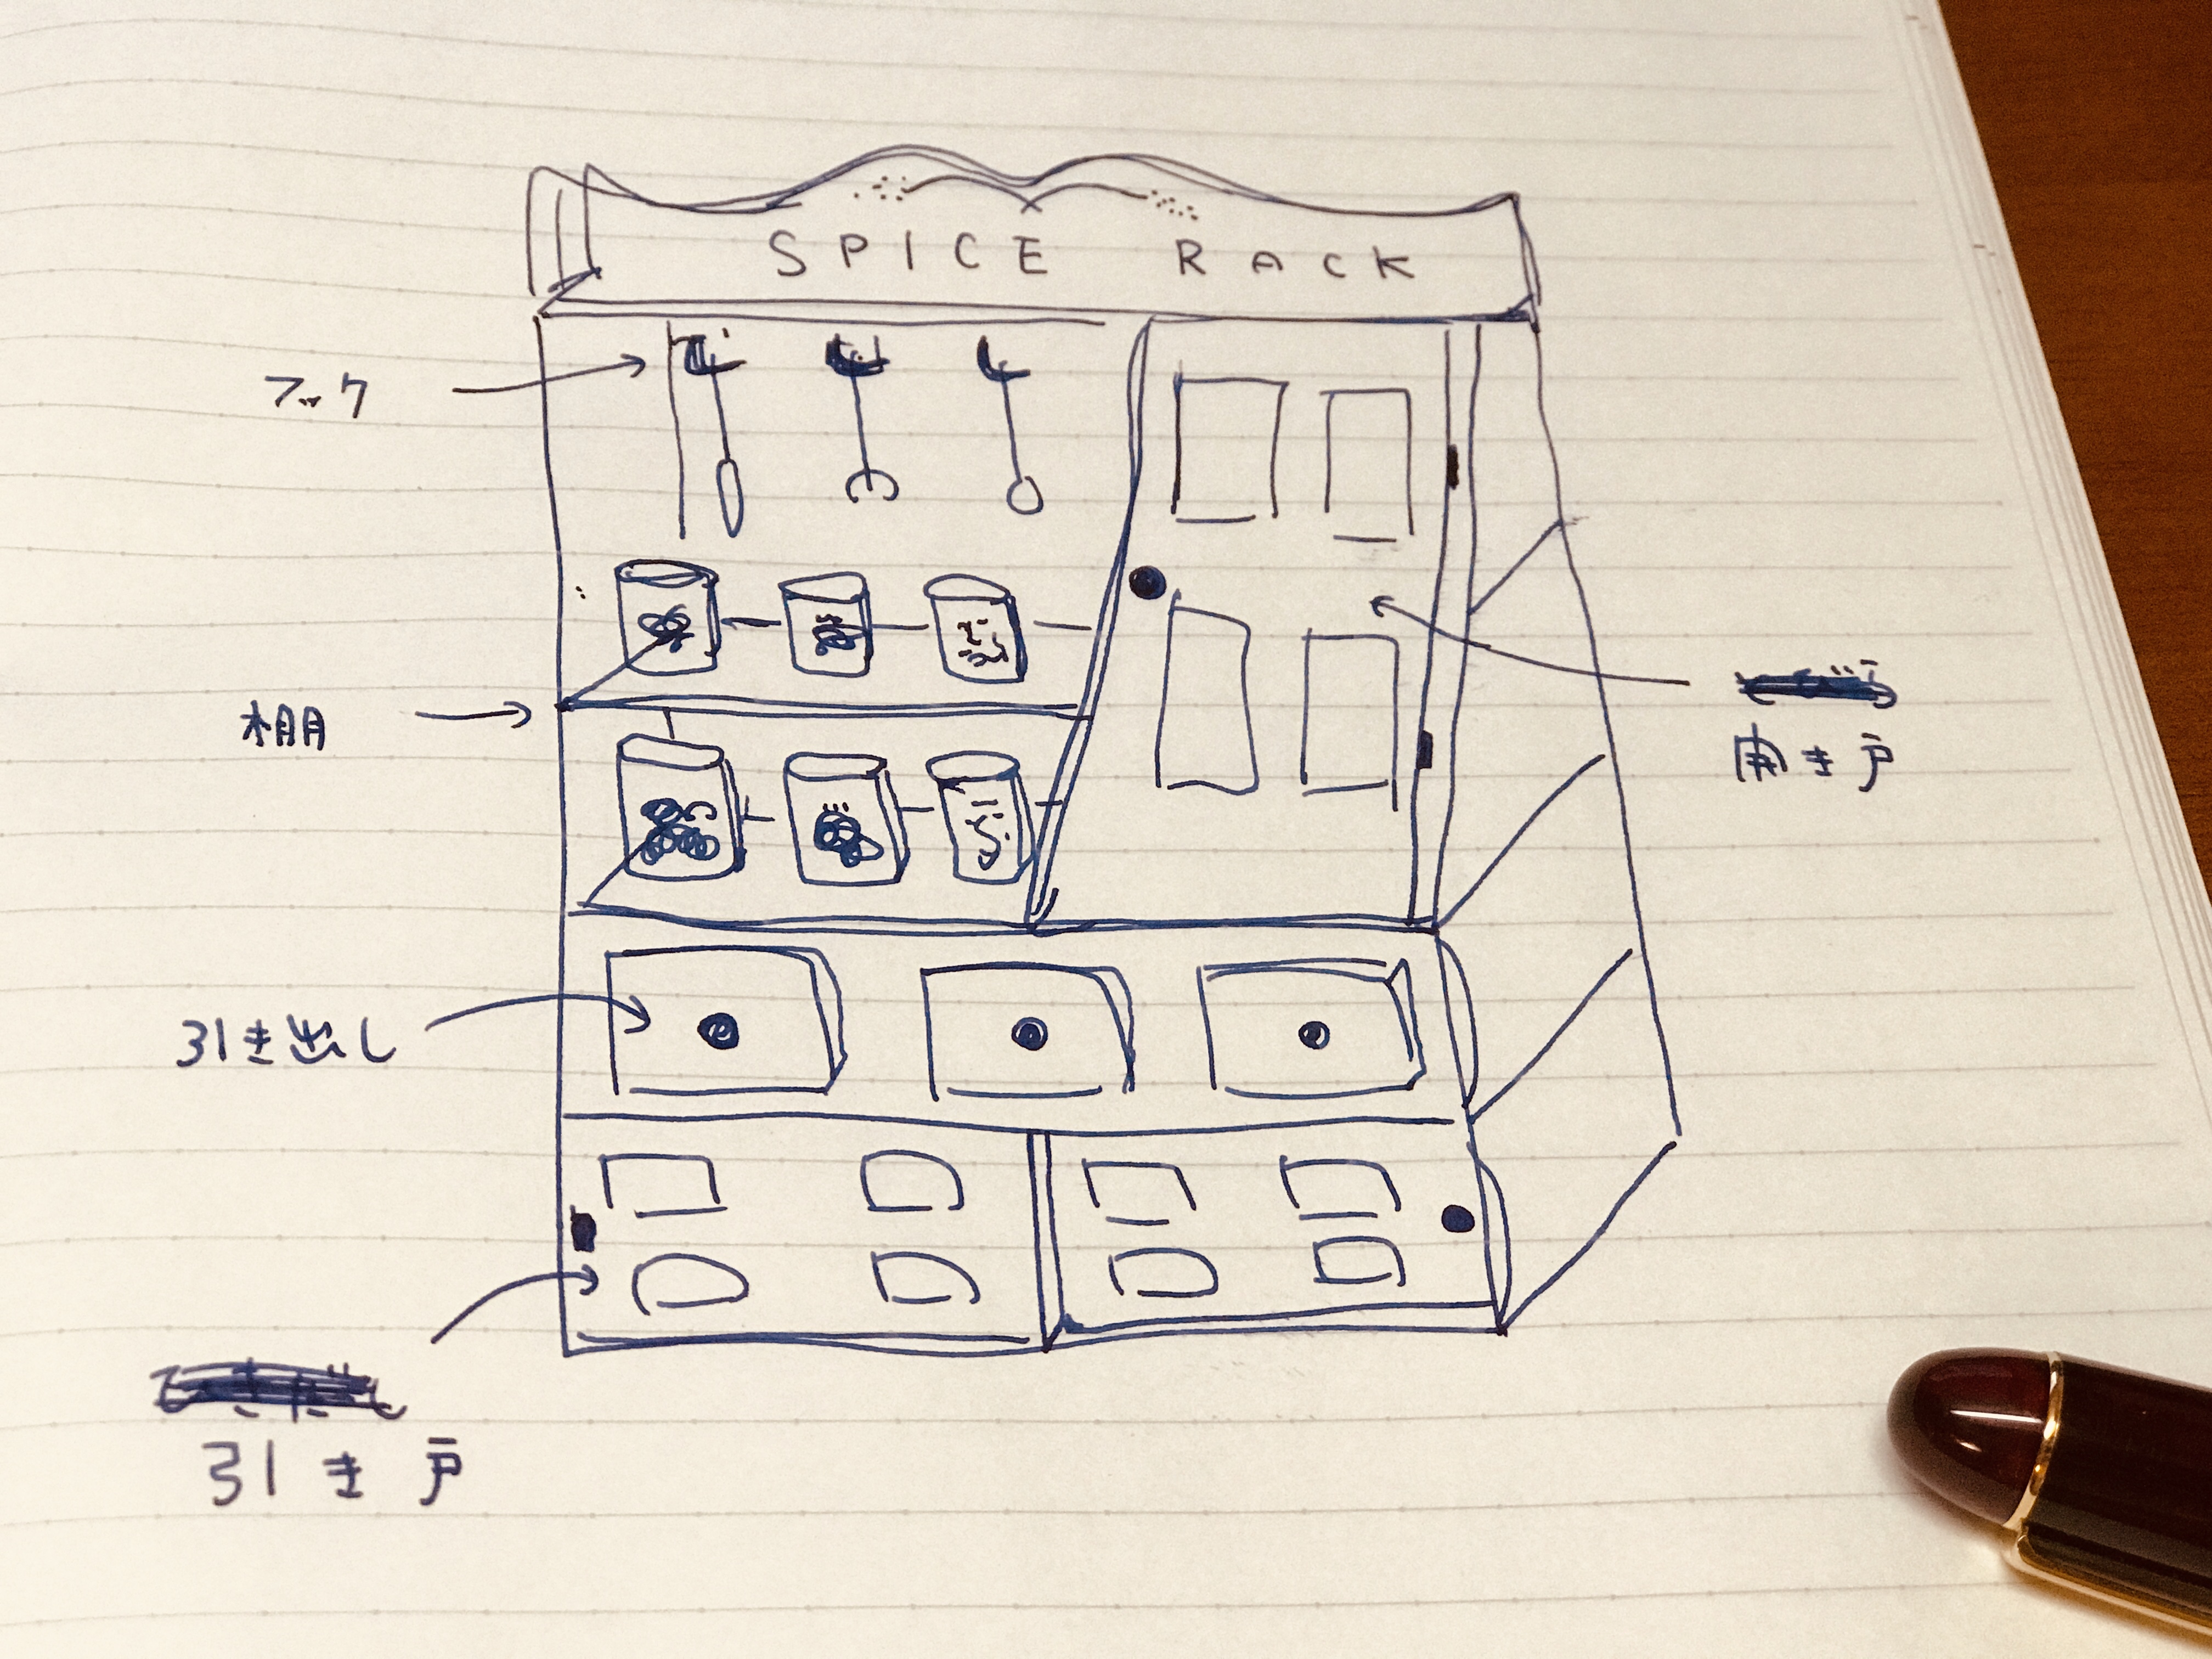 SPICE RACK
フック
棚
開き戸
引き出し
引き戸